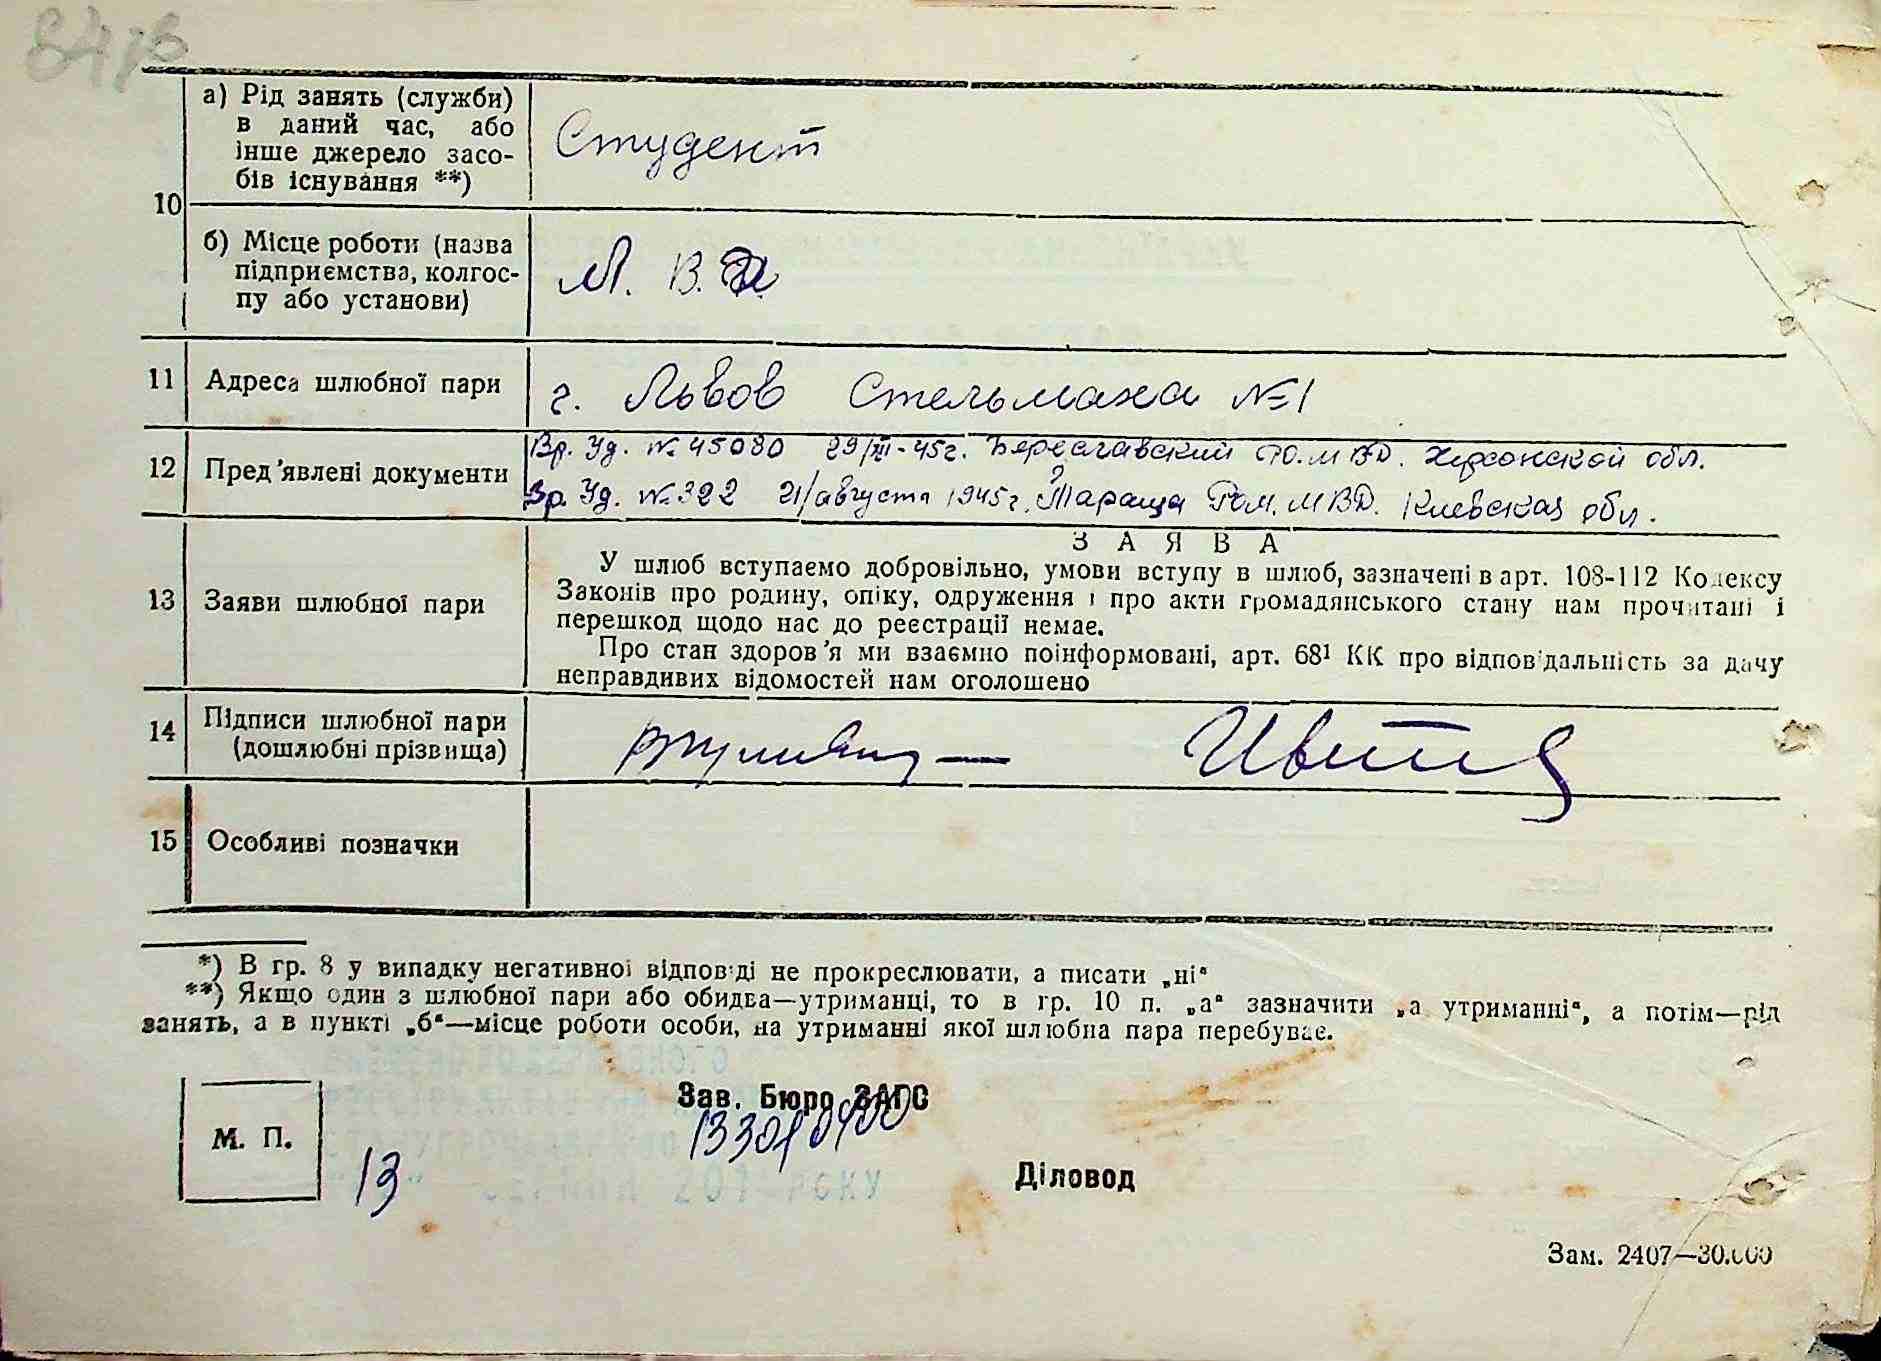 10
а) Рід занять (служби)
в даний час, або
інше джерело засо-
бів існування **)
Студент
б) Місце роботи (назва
підприємства, колгос-
пу або установи)
М. В. Д.
11 Адреса шлюбної пари
г. Львов Стельмаха №1
12 Пред'явлені документи
Вр. Уд. № 45080 29/XII-45г. Бериславский РО. МВД. Херсонской обл.
Вр. Уд. № 322 21/августа 1945г. Тараща МВД. Киевская обл.
13 Заяви шлюбної пари
ЗАЯВА
У шлюб вступаємо добровільно, умови вступу в шлюб, зазначені в арт. 108-112 Кодексу
Законів про родину, опіку, одруження і про акти громадянського стану нам прочитані і
перешкод щодо нас до реєстрації немає.
Про стан здоров'я ми взаємно поінформовані, арт. 68¹ КК про відповідальність за дачу
неправдивих відомостей нам оголошено
14 Підписи шлюбної пари
(дошлюбні прізвища)
15 Особливі позначки
*) В гр. 8 у випадку негативної відповіді не прокреслювати, а писати „ні“
**) Якщо один з шлюбної пари або обидва—утриманці, то в гр. 10 п. „а“ зазначити „а утриманні“, а потім—рід
занять, а в пункті „б“—місце роботи особи, на утриманні якої шлюбна пара перебуває.
Зав. Бюро ЗАГС
М. П.
13
Діловод
Зам. 2407—30.000